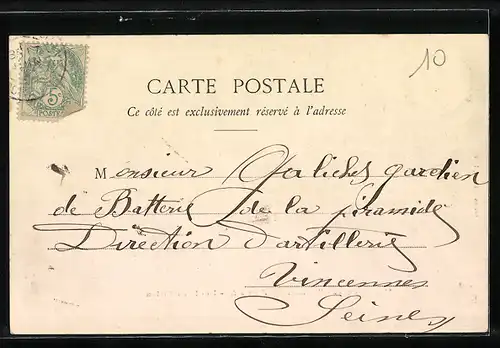 10
CARTE POSTALE
Ce côté est exclusivement réservé à l'adresse
5
POSTES
Monsieur gardien
de Batterie de la piramide
Direction d'artillerie
Vincennes
Seine